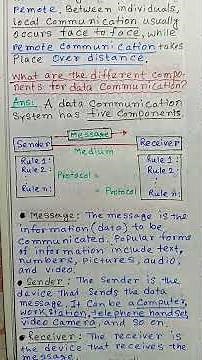 remote. Between individuals,
local communication usually
occurs face to face, while
remote communication takes
Place over distance.
What are the different compo-
nents for data communication?
Ans: A data communication
system has five components
Message
Sender Receiver
Medium
Rule 1: Rule 1:
Rule 2: Rule 2:
Protocol =
Rule n: = Protocol Rule n:
• Message: The message is the
information (data) to be
communicated. Popular forms
of information include text,
numbers, pictures, audio,
and video.
• Sender: The sender is the
device that sends the data
message. It can be a computer,
workstation, telephone handset,
video camera, and so on.
• Receiver: The receiver is
the device that receives the
message.